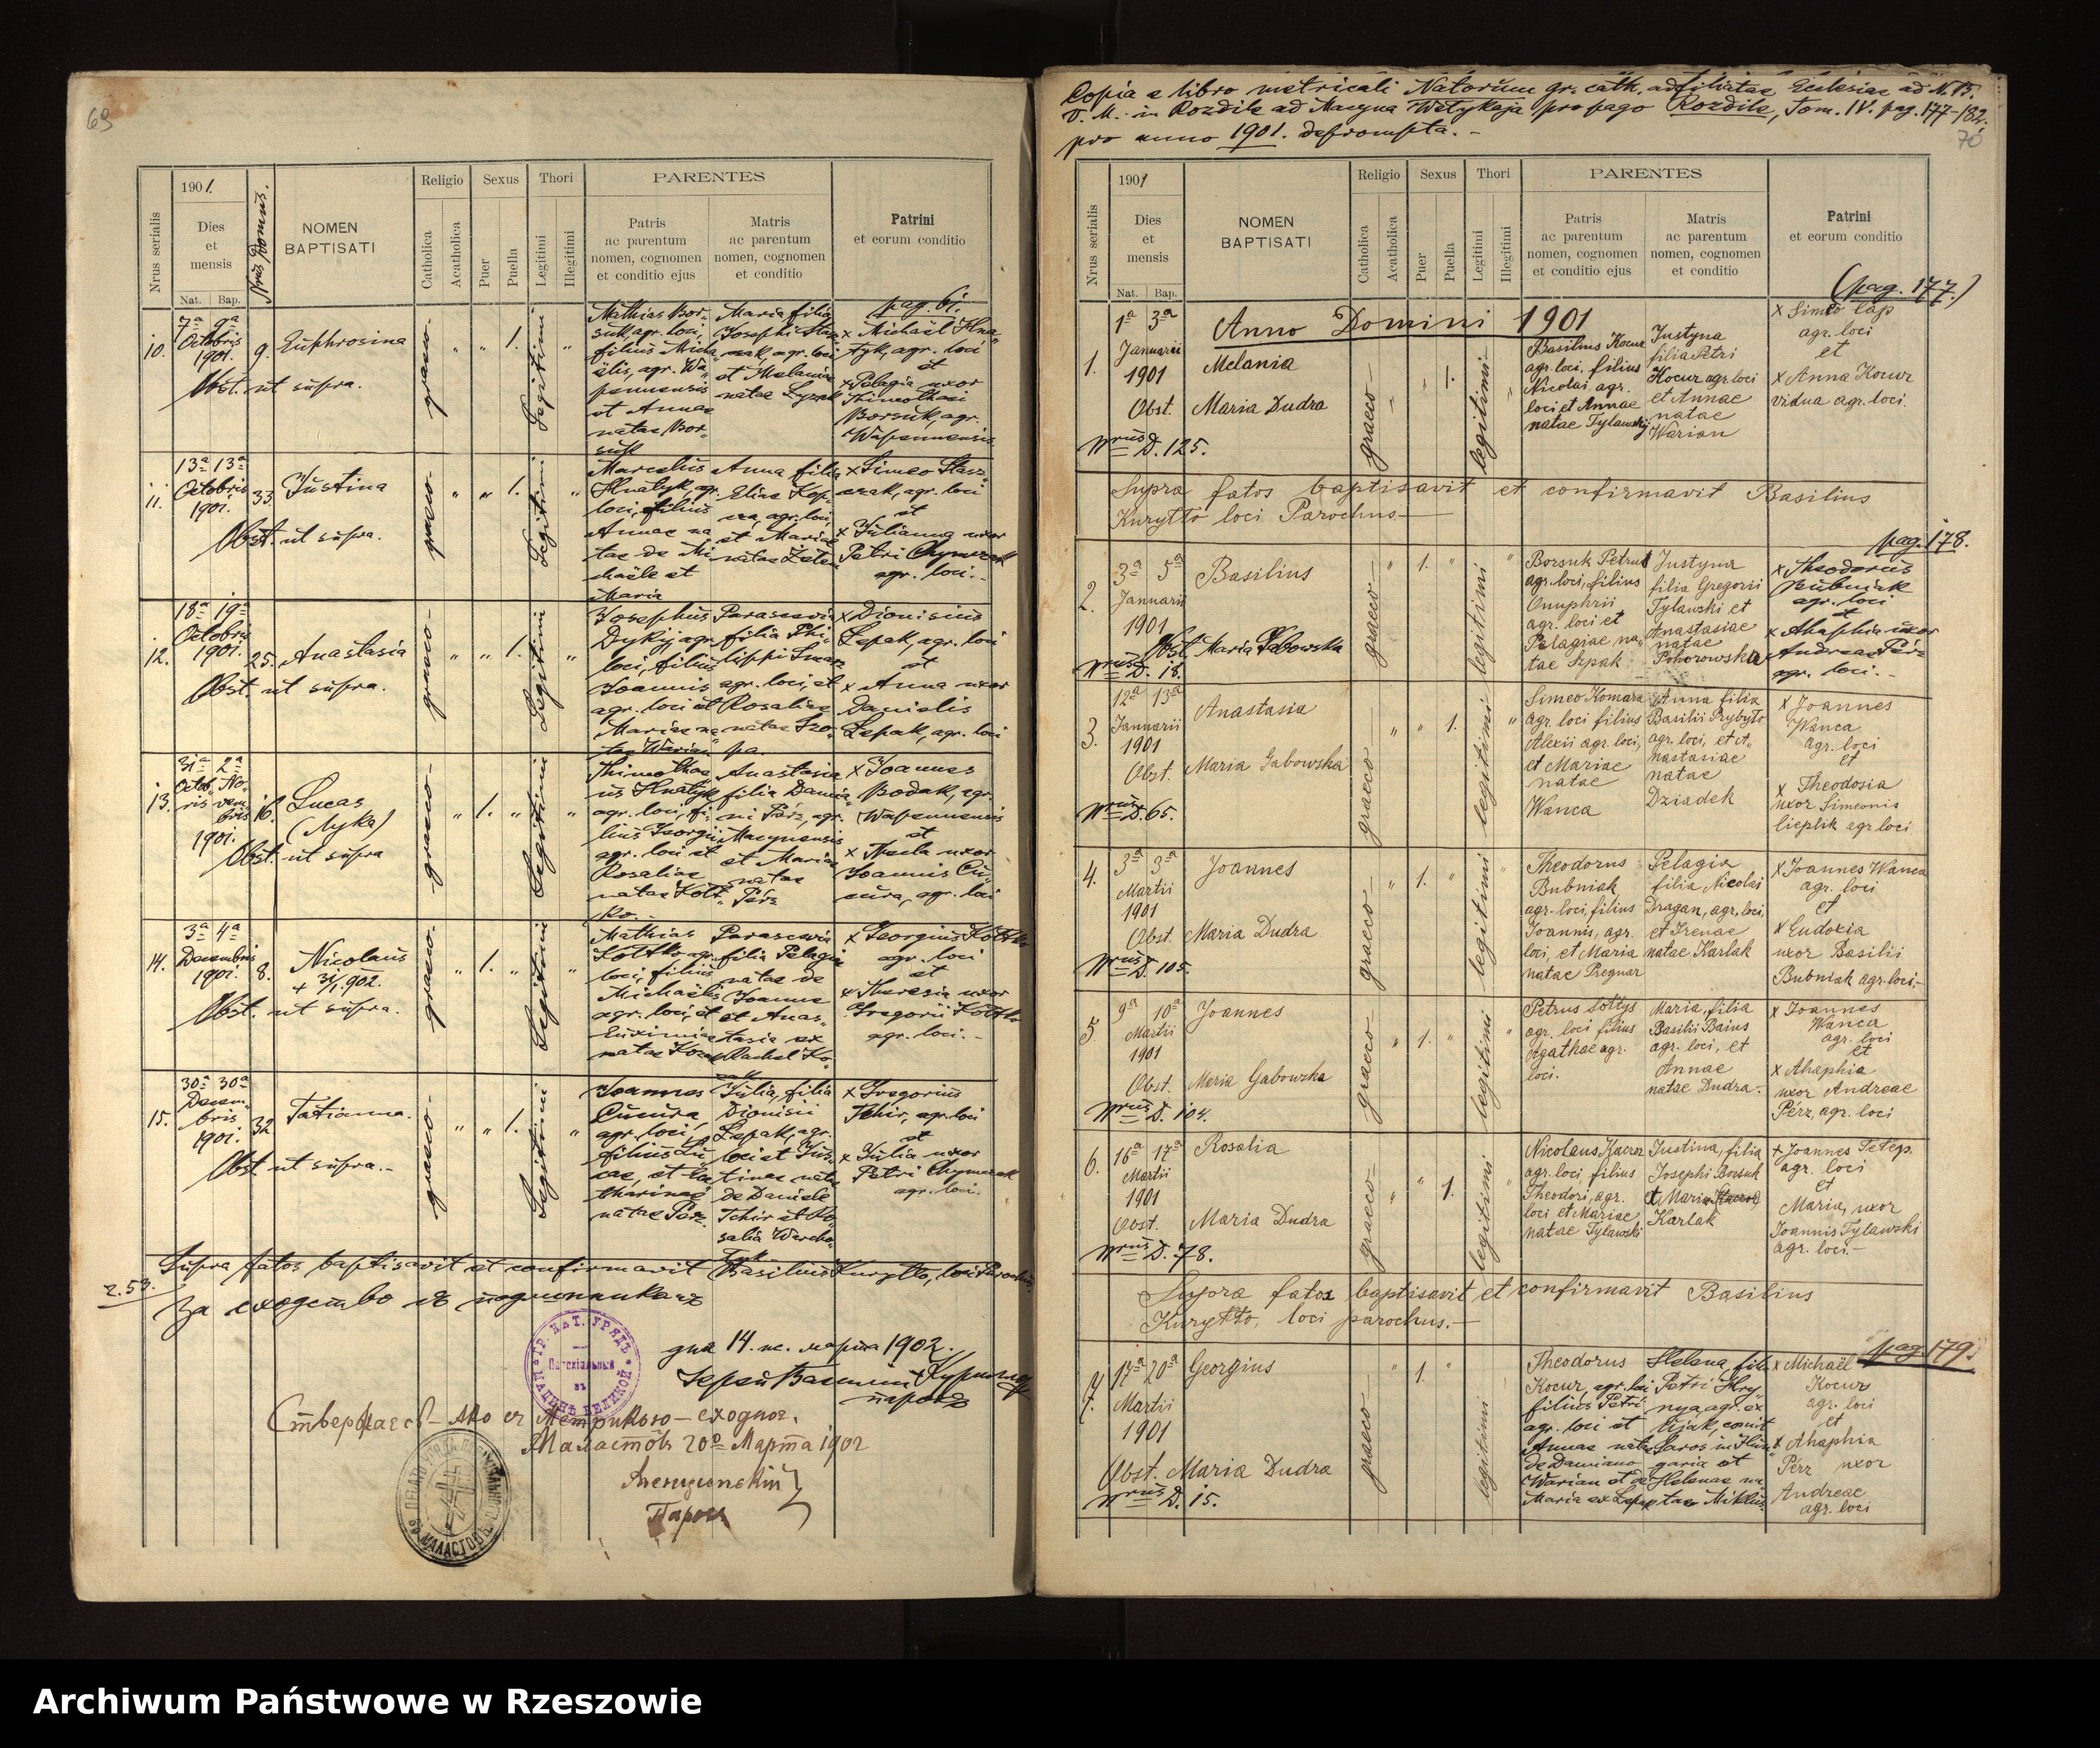 69
1901.
Nrus serialis
Dies
et
mensis
Nat. Bap.
Nrus Domus.
NOMEN
BAPTISATI
Religio
Catholica
Acatholica
Sexus
Puer
Puella
Thori
Legitimi
Illegitimi
PARENTES
Patris
ac parentum
nomen, cognomen
et conditio ejus
Matris
ac parentum
nomen, cognomen
et conditio
Patrini
et eorum conditio
pag. 61.
10.
7ª 9ª
Octobris
1901.
9.
Euphrosina
Obst. ut supra.
graeco-
" " 1.
Legitimi
"
Mathias Bor-
suk, agr. loci,
filius Micha
ëlis, agr. Wa
pennensis
et Annae
natae Bor-
suk
Maria filia
Josephi
agr. loci
et Melaniae
natae
x Michaël Hna
tyk, agr. loci
et
x Pelagia uxor
Thimothaei
Borsuk, agr.
Wapennensis
11.
13ª 13ª
Octobris
1901.
33.
Justina
Obst. ut supra.
graeco-
" " 1.
Legitimi
"
Marcelus
Hnatyk, agr.
loci, filius
Annae na
tae de Mi
chaële et
Maria
Anna filia
Eliae
agr. loci,
et Mariae
natae
x Simeo
agr. loci
et
x Julianna uxor
Petri Chymczak
agr. loci.-
12.
18ª 19ª
Octobris
1901.
25.
Anastasia
Obst. ut supra.
graeco-
" " 1.
Legitimi
"
Josephus
Dykyj, agr.
loci, filius
Joannis
agr. loci et
Mariae na
tae Warian
Parascevia
filia Phi
lippi
agr. loci, et
Rosaliae
natae
x Dionisius
Lepak, agr. loci
et
x Anna uxor
Danielis
Lepak, agr. loci
13.
31ª 2ª
Octob. No-
ris vem
bris
1901.
16.
Lucas
(Лука)
Obst. ut supra
graeco-
" 1. " "
Legitimi
Thimothae
us Hnatyk
agr. loci, fi-
lius Georgii
agr. loci et
Rosaliae
natae Kolt
ko.-
Anastasia
filia Damia
ni Pérz, agr.
Macynensis
et Mariae
natae
Pérz
x Joannes
Bodak, agr.
Wapennensis
et
x Thecla uxor
Joannis Cu
cura, agr. loci
14.
3ª 4ª
Decembris
1901.
8.
Nicolaus
+ 31/1.902.
Obst. ut supra.
graeco-
" 1. " "
Legitimi
Mathias
Koltko, agr.
loci, filius
Michaëlis
agr. loci, et
natae
Parascevia
filia Pelagiae
natae de
Joanne
et Anas-
tasia ex
x Georgius Koltko
agr. loci
et
x Theresia uxor
Gregorii Koltko
agr. loci.-
15.
30ª 30ª
Decem-
bris
1901.
32
Tatianna.
Obst. ut supra.-
graeco-
" " 1.
Legitimi
"
Joannes
Cucura,
agr. loci,
filius Lu
cae, et Ca
tharinae
natae Pérz.
Julia, filia
Dionisii
Lepak, agr.
loci et Jus-
tinae natae
de Daniele
Tchir et Ro
salia
x Gregorius
Tchir, agr. loci
et
x Julia uxor
Petri Chymczak
agr. loci.
Supra fatos baptisavit et confirmavit Basilius Kurytto, loci Parochus.
2.53.
За сходство
дня 14. марта 1902.
парохъ
ГР. КАТ. УРЯДЪ
Стверджає
Маластôвъ 20º Марта 1902
Парохъ
Copia e libro metricali Natorum gr. cath. adfiliatae Ecclesiae ad N. B.
V. M. in Rozdile ad Macyna Welykaja pro pago Rozdile, Tom. IV. pag. 177-182.
pro anno 1901. deprompta.-
70
1901
Nrus serialis
Dies
et
mensis
Nat. Bap.
NOMEN
BAPTISATI
Religio
Catholica
Acatholica
Sexus
Puer
Puella
Thori
Legitimi
Illegitimi
PARENTES
Patris
ac parentum
nomen, cognomen
et conditio ejus
Matris
ac parentum
nomen, cognomen
et conditio
Patrini
et eorum conditio
(pag. 177.)
Anno Domini 1901
1.
1ª 3ª
Januarii
1901
Melania
Obst. Maria Dudra
Nrus D. 125.
graeco-
legitimi
Basilius Kocur
agr. loci, filius
Nicolai agr.
loci et Annae
natae Tylawskyj
Justyna
filia Petri
Kocur agr. loci
et Annae
natae
Warian
x Simeo Cap
agr. loci
et
x Anna Kocur
vidua agr. loci
Supra fatos baptisavit et confirmavit Basilius
Kurytto loci Parochus.-
pag. 178.
2.
3ª 5ª
Januarii
1901
Basilius
Obst. Maria Gabowska
Nrus D. 18.
graeco-
" 1. "
legitimi
"
Borsuk Petrus
agr. loci, filius
Onuphrii
agr. loci et
Pelagiae na
tae Szpak
Justyna
filia Gregorii
Tylawski et
Anastasiae
natae
Pohorowska
x Theodorus
Bubniak
agr. loci
et
x Ahaphia uxor
Andreae Pérz
agr. loci.-
3.
12ª 13ª
Januarii
1901
Anastasia
Obst. Maria Gabowska
Nrus D. 65.
graeco
" " 1.
legitimi
"
Simeo Komara
agr. loci filius
Alexii agr. loci,
et Mariae
natae
Wanca
Anna filia
Basilii Prybyto
agr. loci, et A
nastasiae
natae
Dziadek
x Joannes
Wanca
agr. loci
et
x Theodosia
uxor Simeonis
Cieplik agr. loci
4.
3ª 3ª
Martii
1901
Joannes
Obst. Maria Dudra
Nrus D. 105.
graeco-
" 1. "
legitimi
"
Theodorus
Bubniak
agr. loci, filius
Joannis, agr.
loci, et Maria
natae Pregnar
Pelagia
filia Nicolai
Dragan, agr. loci,
et Irenae
natae Karlak
x Joannes Wanca
agr. loci
et
x Eudoxia
uxor Basilii
Bubniak agr. loci.-
5
9ª 10ª
Martii
1901
Joannes
Obst. Maria Gabowska
Nrus D. 104.
graeco-
" 1. "
legitimi
"
Petrus Soltys
agr. loci filius
Agathae agr.
loci.
Maria, filia
Basilii Baius
agr. loci, et
Annae
natae Dudra.
x Joannes
Wanca
agr. loci
et
x Ahaphia
uxor Andreae
Pérz, agr. loci
6.
16ª 17ª
Martii
1901
Rosalia
Obst. Maria Dudra
Nrus D. 78.
graeco-
" " 1.
legitimi
"
Nicolaus Kocur
agr. loci filius
Theodori, agr.
loci et Mariae
natae Tylawski
Justina, filia
Josephi Borsuk
et Maria
Karlak
+ Joannes Telep.
agr. loci
et
Maria, uxor
Joannis Tylawski
agr. loci.-
Supra fatos baptisavit et confirmavit Basilius
Kurytto, loci parochus.-
pag. 179.
7.
17ª 20ª
Martii
1901
Georgius
Obst. Maria Dudra
Nrus D. 15.
graeco-
" 1. "
legitimi
Theodorus
Kocur, agr. loci
filius Petri
agr. loci et
Annae natae
de Damiano
Warian et de
Maria ex
Helena, fil.
Petri Hry
nya, agr. ex
comit.
Saros in Hun
garia et
Helenae na
tae
x Michaël
Kocur
agr. loci
et
x Ahaphia
Pérz uxor
Andreae
agr. loci
Archiwum Państwowe w Rzeszowie